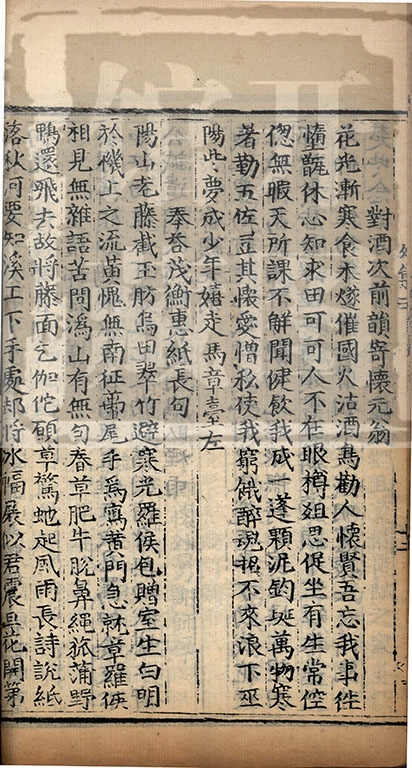 對酒次前韻寄懷元翁
花光漸寒食木燧催國火沽酒鳥勸人懷賢吾忘我事徃
墮甑休心知求田可可人不在眼樽俎思促坐有生常倥
偬無暇天所課不解聞健飲我成一蓬顆泥鈞埏萬物寒
著勤五佐豈其懷愛憎私使我窮餓醉魂招不來浪下巫
陽些夢成少年嬉走馬章臺左
奉荅茂衡惠紙長句
陽山老藤截玉肪烏田翠竹避寒光羅侯包贈室生白明
於機上之流黄愧無南征蠆尾手爲寫黄門急就章羅侯
相見無雜語苦問潙山有無句春草肥牛脫鼻繩菰蒲野
鴨還飛去故將藤面乞伽佗願草驚虵起風雨長詩說紙
落秋河要知溪工下手處却將冰幅展似君震旦花開第